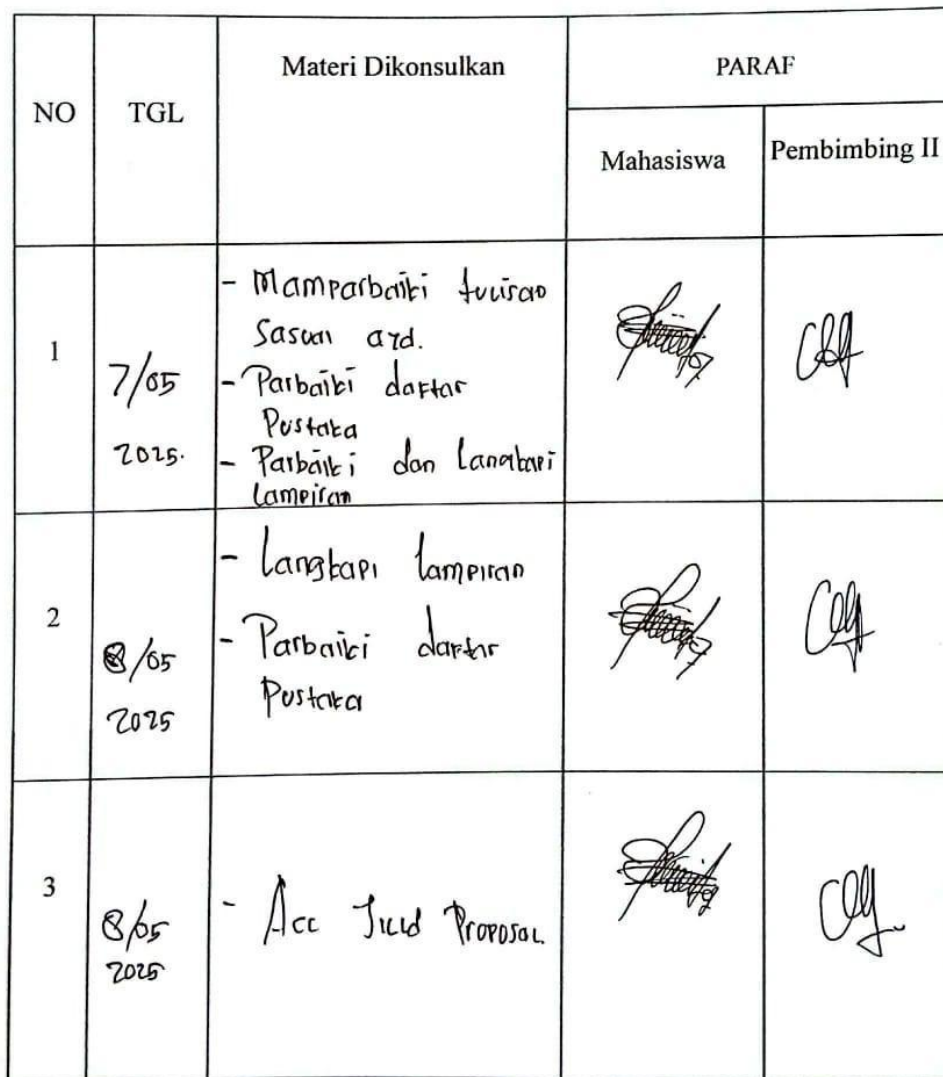 NO
TGL
Materi Dikonsulkan
PARAF
Mahasiswa
Pembimbing II
1
7/05
2025.
- Memperbaiki tulisan
Sesuai
- Perbaiki daftar
Pustaka
- Perbaiki dan Lengkapi
Lampiran
2
8/05
2025
- Lengkapi lampiran
- Perbaiki daftar
Pustaka
3
8/05
2025
- Acc Proposal